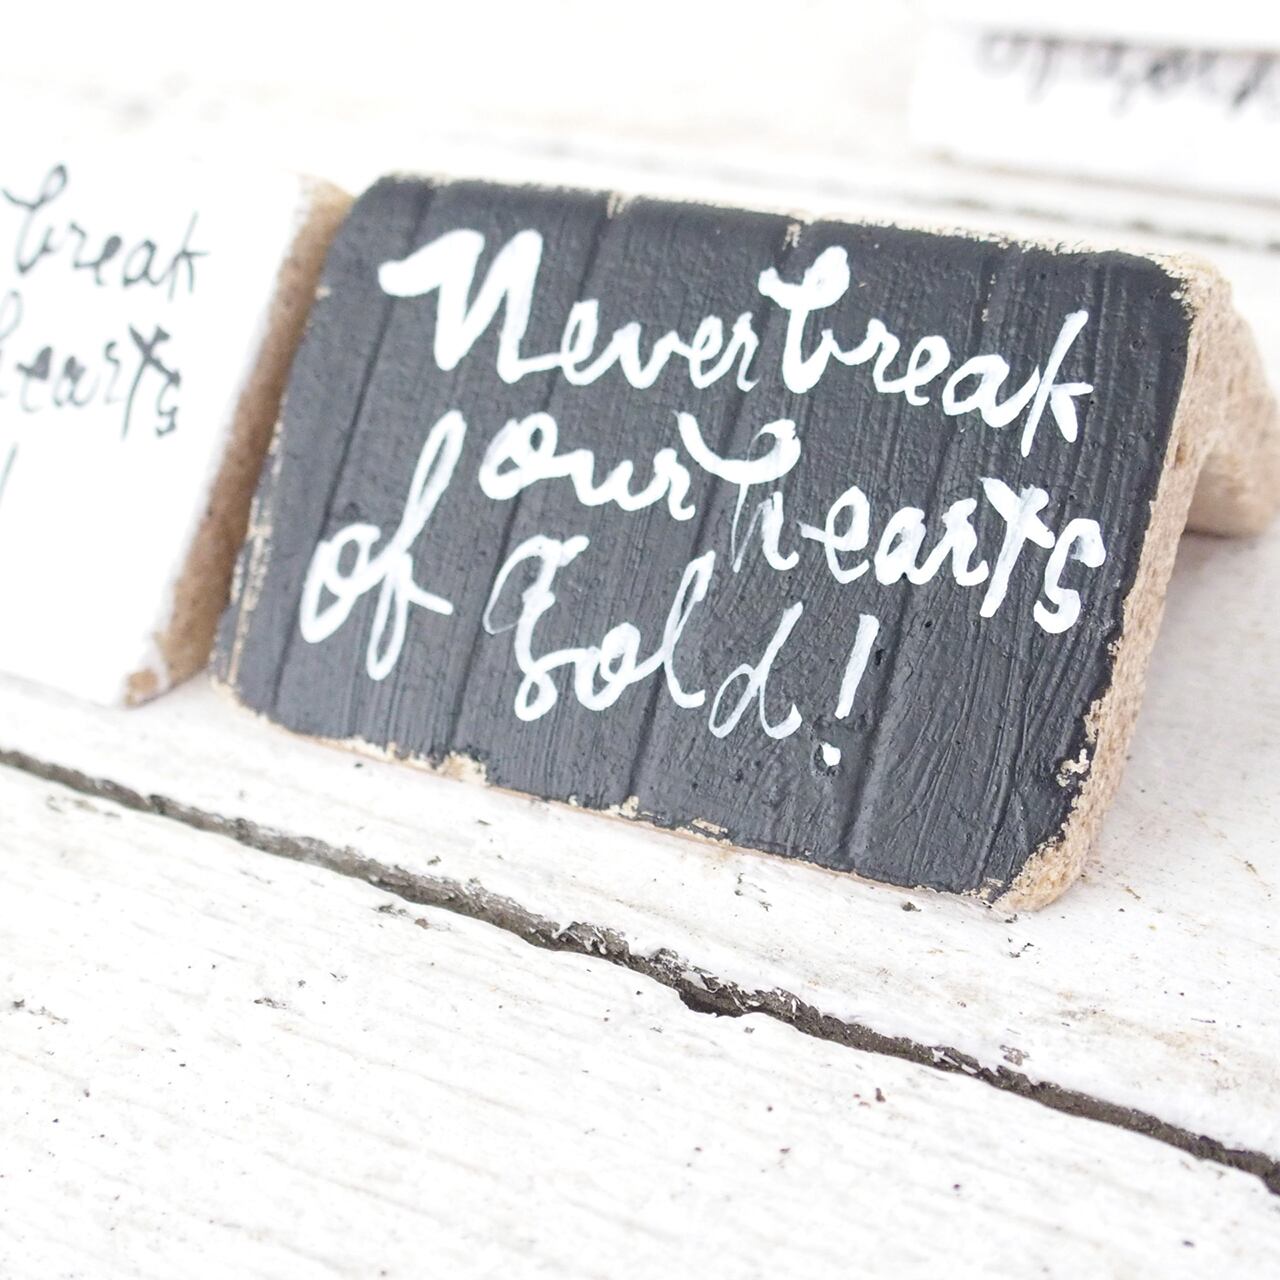 break
hearts
Never break
our hearts
of Gold!